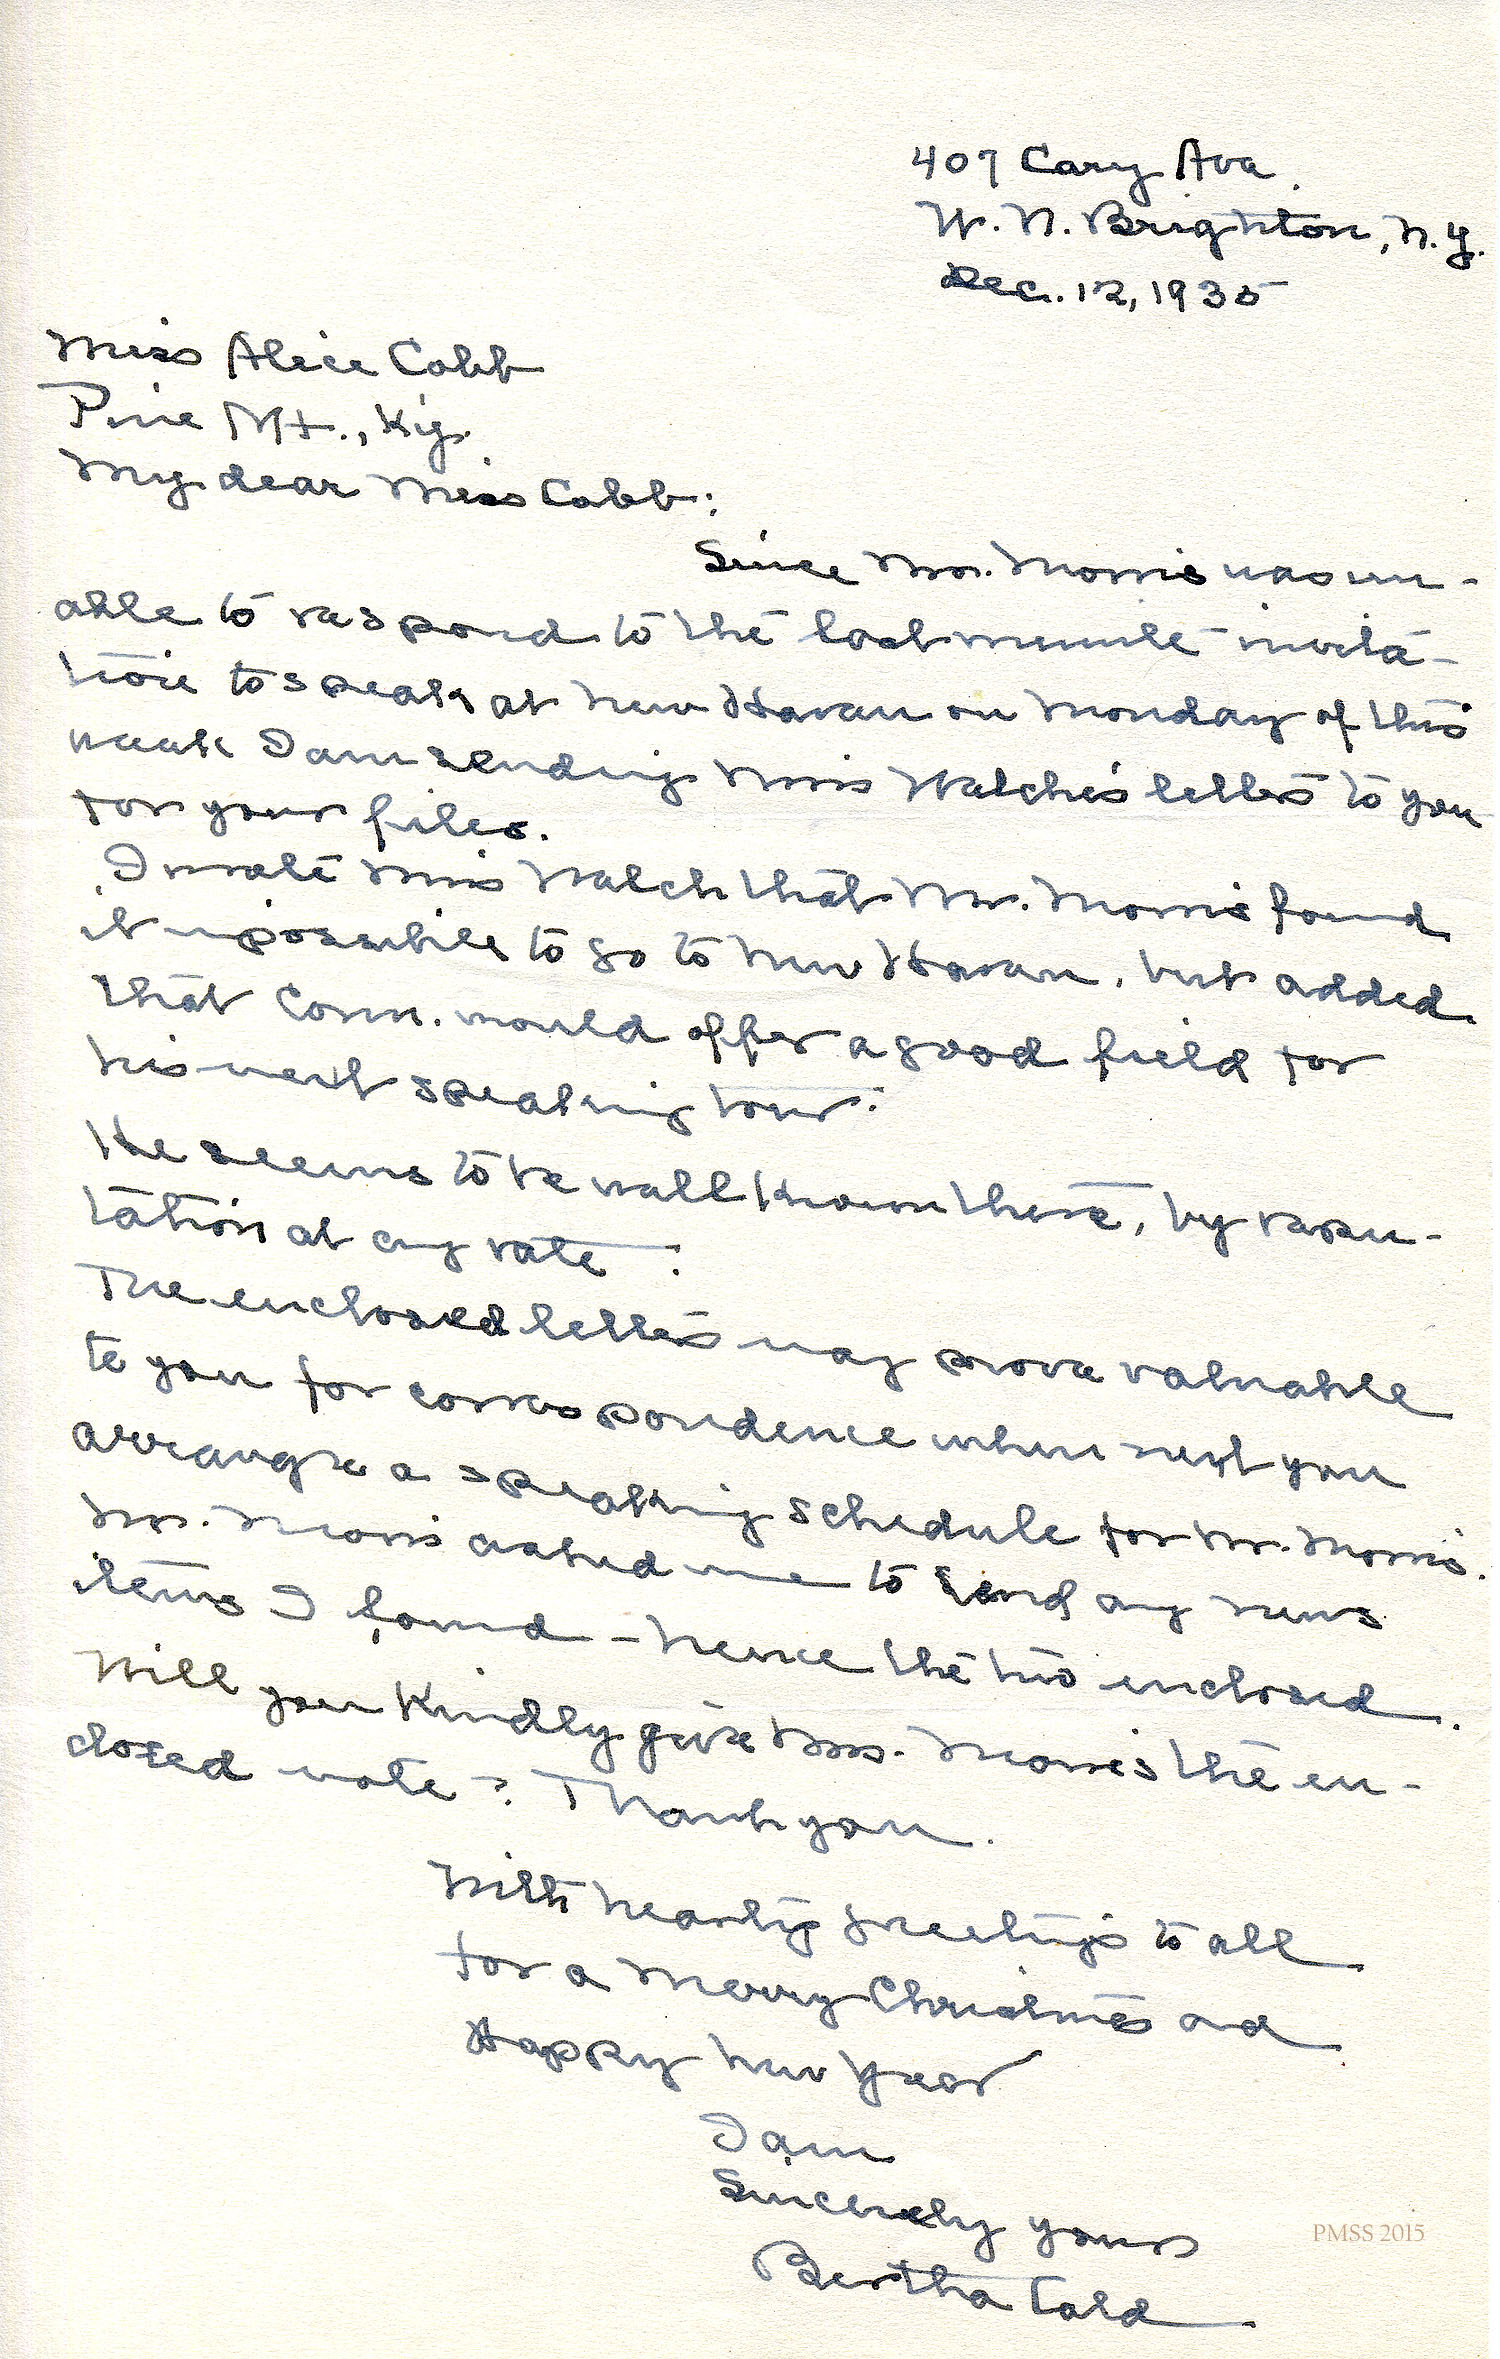 407 Cary Ave.
W. N. Brighton, N.Y.
Dec. 12, 1935
Miss Alice Cobb
Pine Mt., Ky.
My dear Miss Cobb:
Since Mr. Morris was un-
able to respond to the last minute invita-
tion to speak at New Haven on Monday of this
week I am sending Miss Walch's letters to you
for your files.
I wrote Miss Walch that Mr. Morris found
it impossible to go to New Haven, but added
that Conn. would offer a good field for
his next speaking tour.
He seems to be well known there, by repu-
tation at any rate.
The enclosed letters may prove valuable
to you for correspondence when next you
arrange a speaking schedule for Mr. Morris.
Mr. Morris asked me to send any news
items I found - hence the two enclosed.
Will you kindly give Mrs. Morris the en-
closed note? Thank you.
With hearty greetings to all
for a Merry Christmas and
Happy New Year
I am
Sincerely yours
Bertha Cold
PMSS 2015